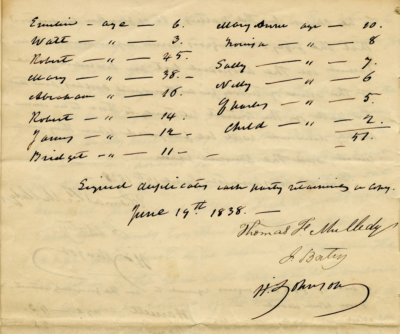 Emeline - age - 6.
Watt - " - 3.
Robert - " - 45.
Mary - " - 38. -
Abraham - " - 16.
Robert - " - 14.
James - " - 12 -
Bridget - " - 11 -
Mary Anne age - 10.
Louisa " - 8
Sally - " - 7.
Nelly - " - 6
Charles - " - 5.
Child - " - 2.
51.
Signed duplicates each party retaining a copy.
June 19th 1838. -
Thomas F. Mulledy
J. Batey
H. Johnson